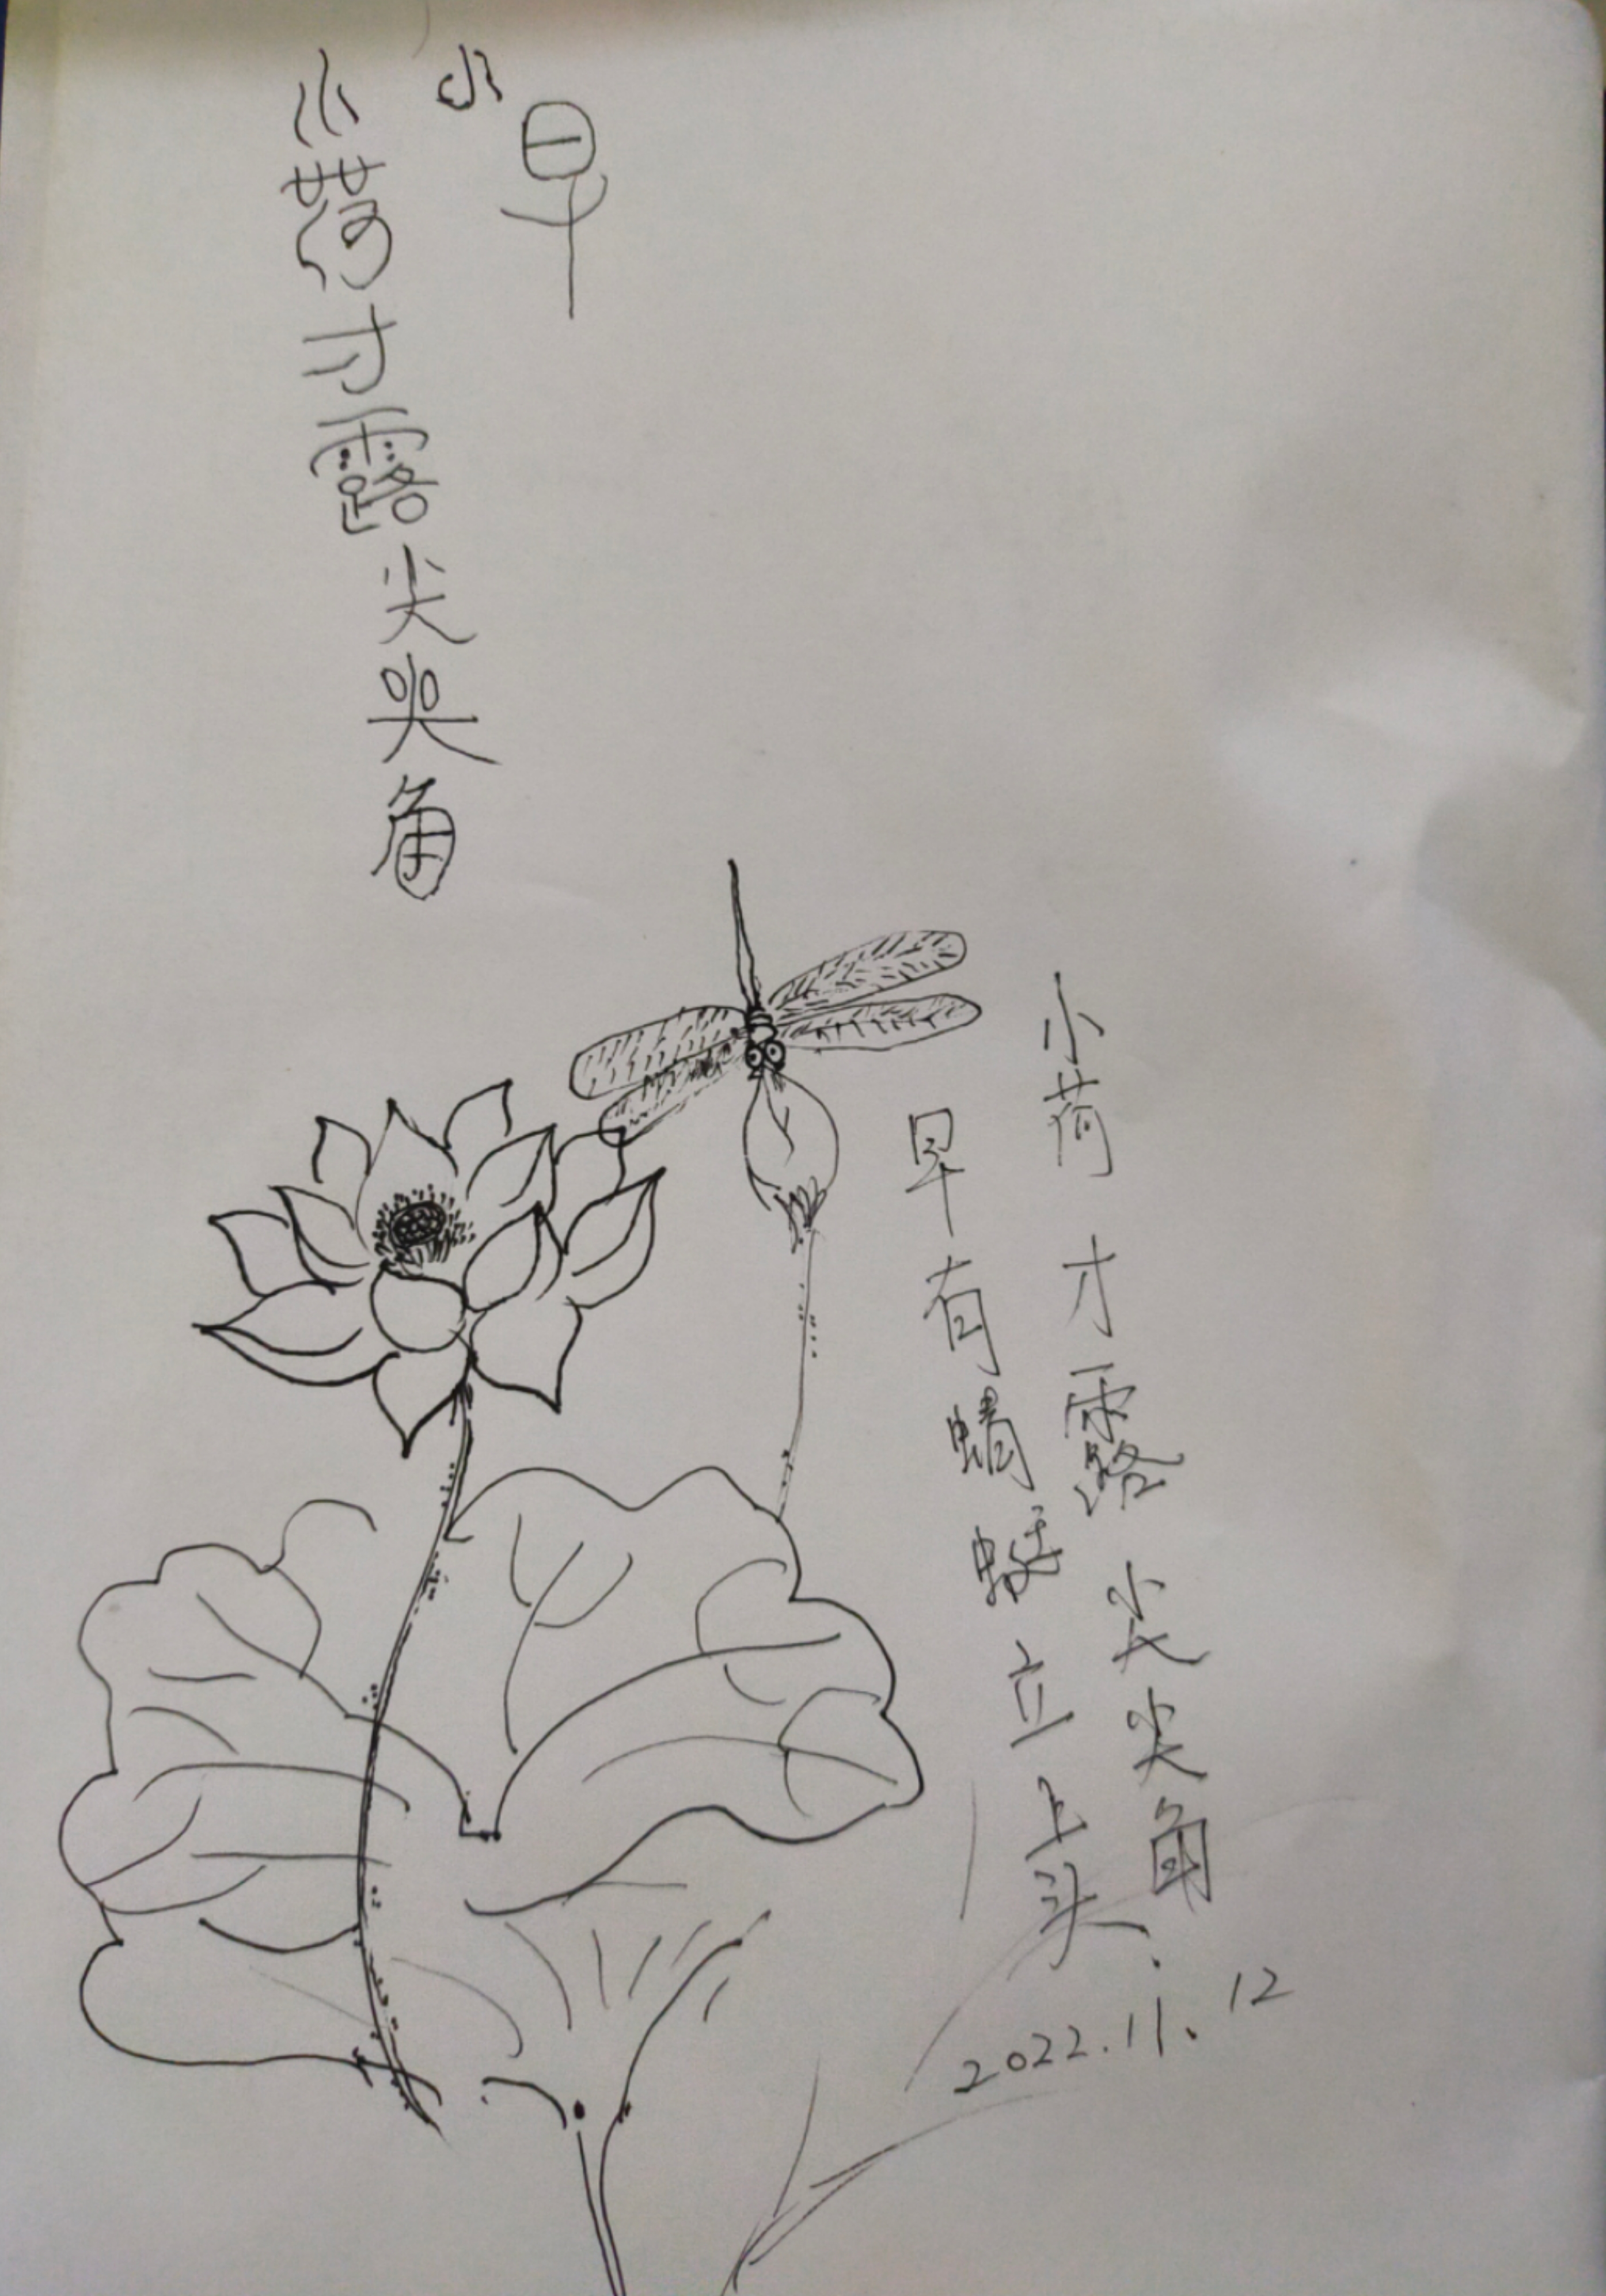 早
小
小荷才露尖尖角
小荷才露尖尖角
早有蜻蜓立上头.
2022.11.12